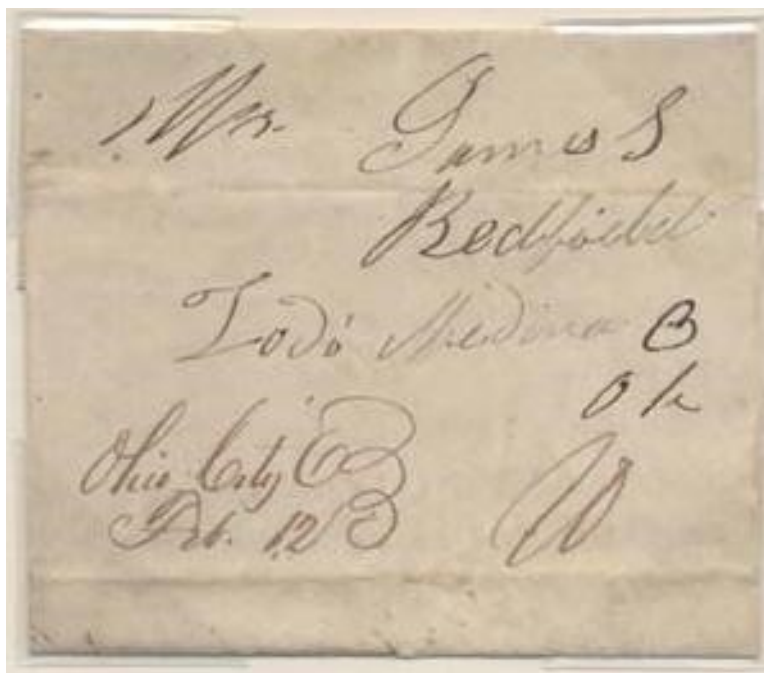 Mr. James S
Redfield
Lodi Medina C
Oh
Ohio City O
Feb. 12
10